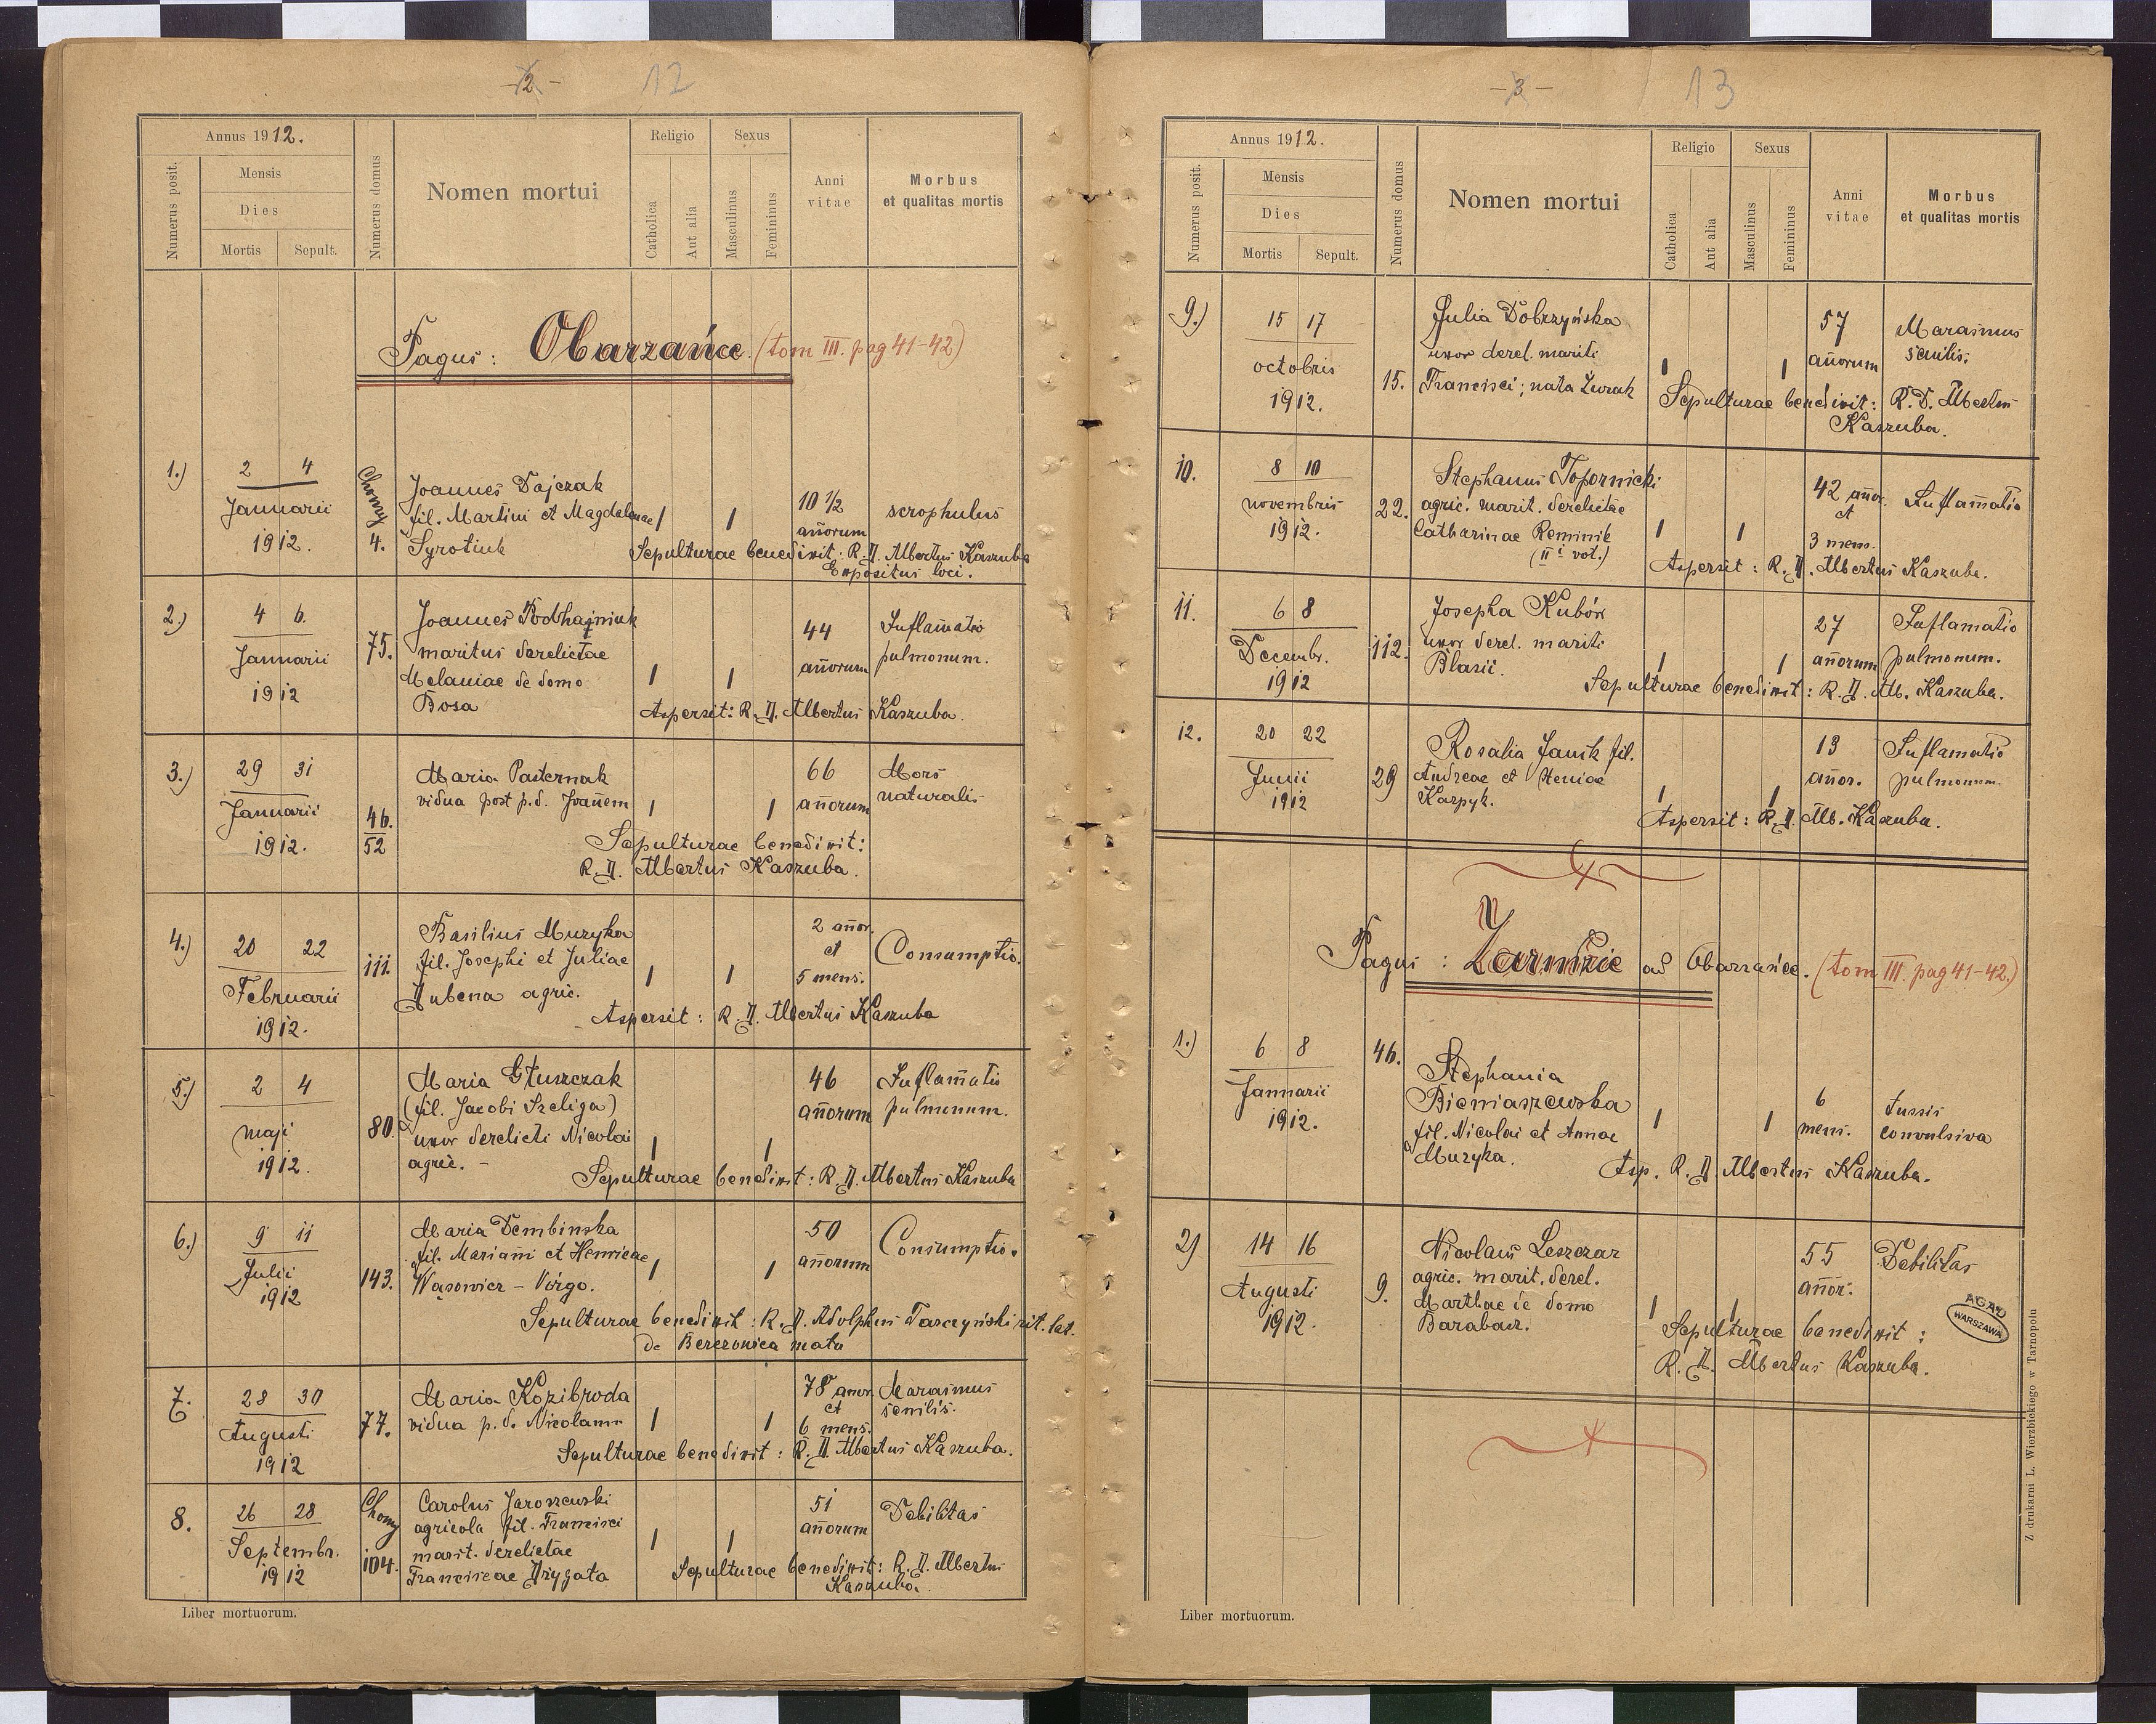 - 2 -
12
Annus 1912.
Numerus posit.
Mensis
Dies
Mortis
Sepult.
Numerus domus
Nomen mortui
Religio
Catholica
Aut alia
Sexus
Masculinus
Femininus
Anni
vitae
Morbus
et qualitas mortis
Pagus: Obarzańce. (tom III. pag 41-42)
1.) 2 4
Januarii
1912.
Chomy
4.
Joannes Dajczak
fil. Martini et Magdalenae
Syrotiuk
1 1
10 1/2
añorum
scrophulus
Sepulturae benedixit: R. D. Albertus Kaszuba
Expositus loci.
2.) 4 6.
Januarii
1912
75.
Joannes Podhajniuk
maritus derelictae
Melaniae de domo
Bosa
1 1
44
añorum
Inflam̃atio
pulmonum.
Aspersit: R. D. Albertus Kaszuba.
3.) 29 31
Januarii
1912.
46.
52
Maria Pasternak
vidua post p.d. Joañem
1 1
66
añorum
Mors
naturalis
Sepulturae benedixit:
R. D. Albertus Kaszuba.
4.) 20 22
Februarii
1912.
111.
Basilius Muzyka
fil. Josephi et Juliae
Dubena agric.
1 1
2 añor.
et
5 mens.
Consumptio.
Aspersit: R. D. Albertus Kaszuba
5.) 2 4
maji
1912.
80.
Maria Głuszczak
(fil. Jacobi Szeliga)
uxor derelicti Nicolai
agric. -
1 1
46
añorum
Inflam̃atio
pulmonum.
Sepulturae benedixit: R. D. Albertus Kaszuba
6.) 9 11
Julii
1912
143.
Maria Dembinska
fil. Mariañi et Henricae
Wąsowicz - Virgo.
1 1
50
añorum
Consumptio.
Sepulturae benedixit: R. D. Adolphus Tarczyński rit. lat.
de Berezowica mała
7. 28 30
Augusti
1912
77.
Maria Kozibroda
vidua p. d. Nicolaum
1 1
78 añor.
et
6 mens.
Marasmus
senilis.
Sepulturae benedixit: R. D. Albertus Kaszuba.
8. 26 28
Septembr.
1912
Chomy
104.
Carolus Jaroszewski
agricola fil. Francisci
marit. derelictae
Franciscae Drygała
1 1
51
añorum
Debilitas
Sepulturae benedixit: R. D. Albertus
Kaszuba.
Liber mortuorum.
- 3 -
13
Annus 1912.
Numerus posit.
Mensis
Dies
Mortis
Sepult.
Numerus domus
Nomen mortui
Religio
Catholica
Aut alia
Sexus
Masculinus
Femininus
Anni
vitae
Morbus
et qualitas mortis
9.) 15 17
octobris
1912.
15.
Julia Dobrzyńska
uxor derel. mariti
Francisci; nata Żurak
1 1
57
añorum
Marasmus
senilis.
Sepulturae benedixit: R. D. Albertus
Kaszuba.
10. 8 10
novembris
1912.
22.
Stephanus Topornicki
agric. marit. derelictae
Catharinae Reminik
(II i vot.)
1 1
42 añor.
et
3 mens.
Inflam̃atio
Aspersit: R. D. Albertus Kaszuba.
11. 6 8
Decembr.
1912
112.
Josepha Kubów
uxor derel. mariti
Blasii.
1 1
27
añorum
Inflamatio
pulmonum.
Sepulturae benedixit: R. D. Alb. Kaszuba.
12. 20 22
Junii
1912
29
Rosalia Janik fil.
Andreae et Xeniae
Karpyk.
1 1
13
añor.
Inflamatio
pulmonum.
Aspersit: R. D. Alb. Kaszuba.
Pagus: ad Obarzańce. (tom III. pag 41-42.)
1.) 6 8
Januarii
1912.
46.
Stephania
Bieniaszewska
fil. Nicolai et Annae
Muzyka.
1 1
6
mens.
tussis
convulsiva
Asp. R. D. Albertus Kaszuba.
2) 14 16
Augusti
1912.
9.
Nicolaus Leszczar
agric. marit. derel.
Marthae de domo
Barabasz.
1 1
55
añor.
Debilitas
Sepulturae benedixit:
R. D. Albertus Kaszuba.
AGAD
WARSZAWA
Liber mortuorum.
Z drukarni L. Wierzbickiego w Tarnopolu